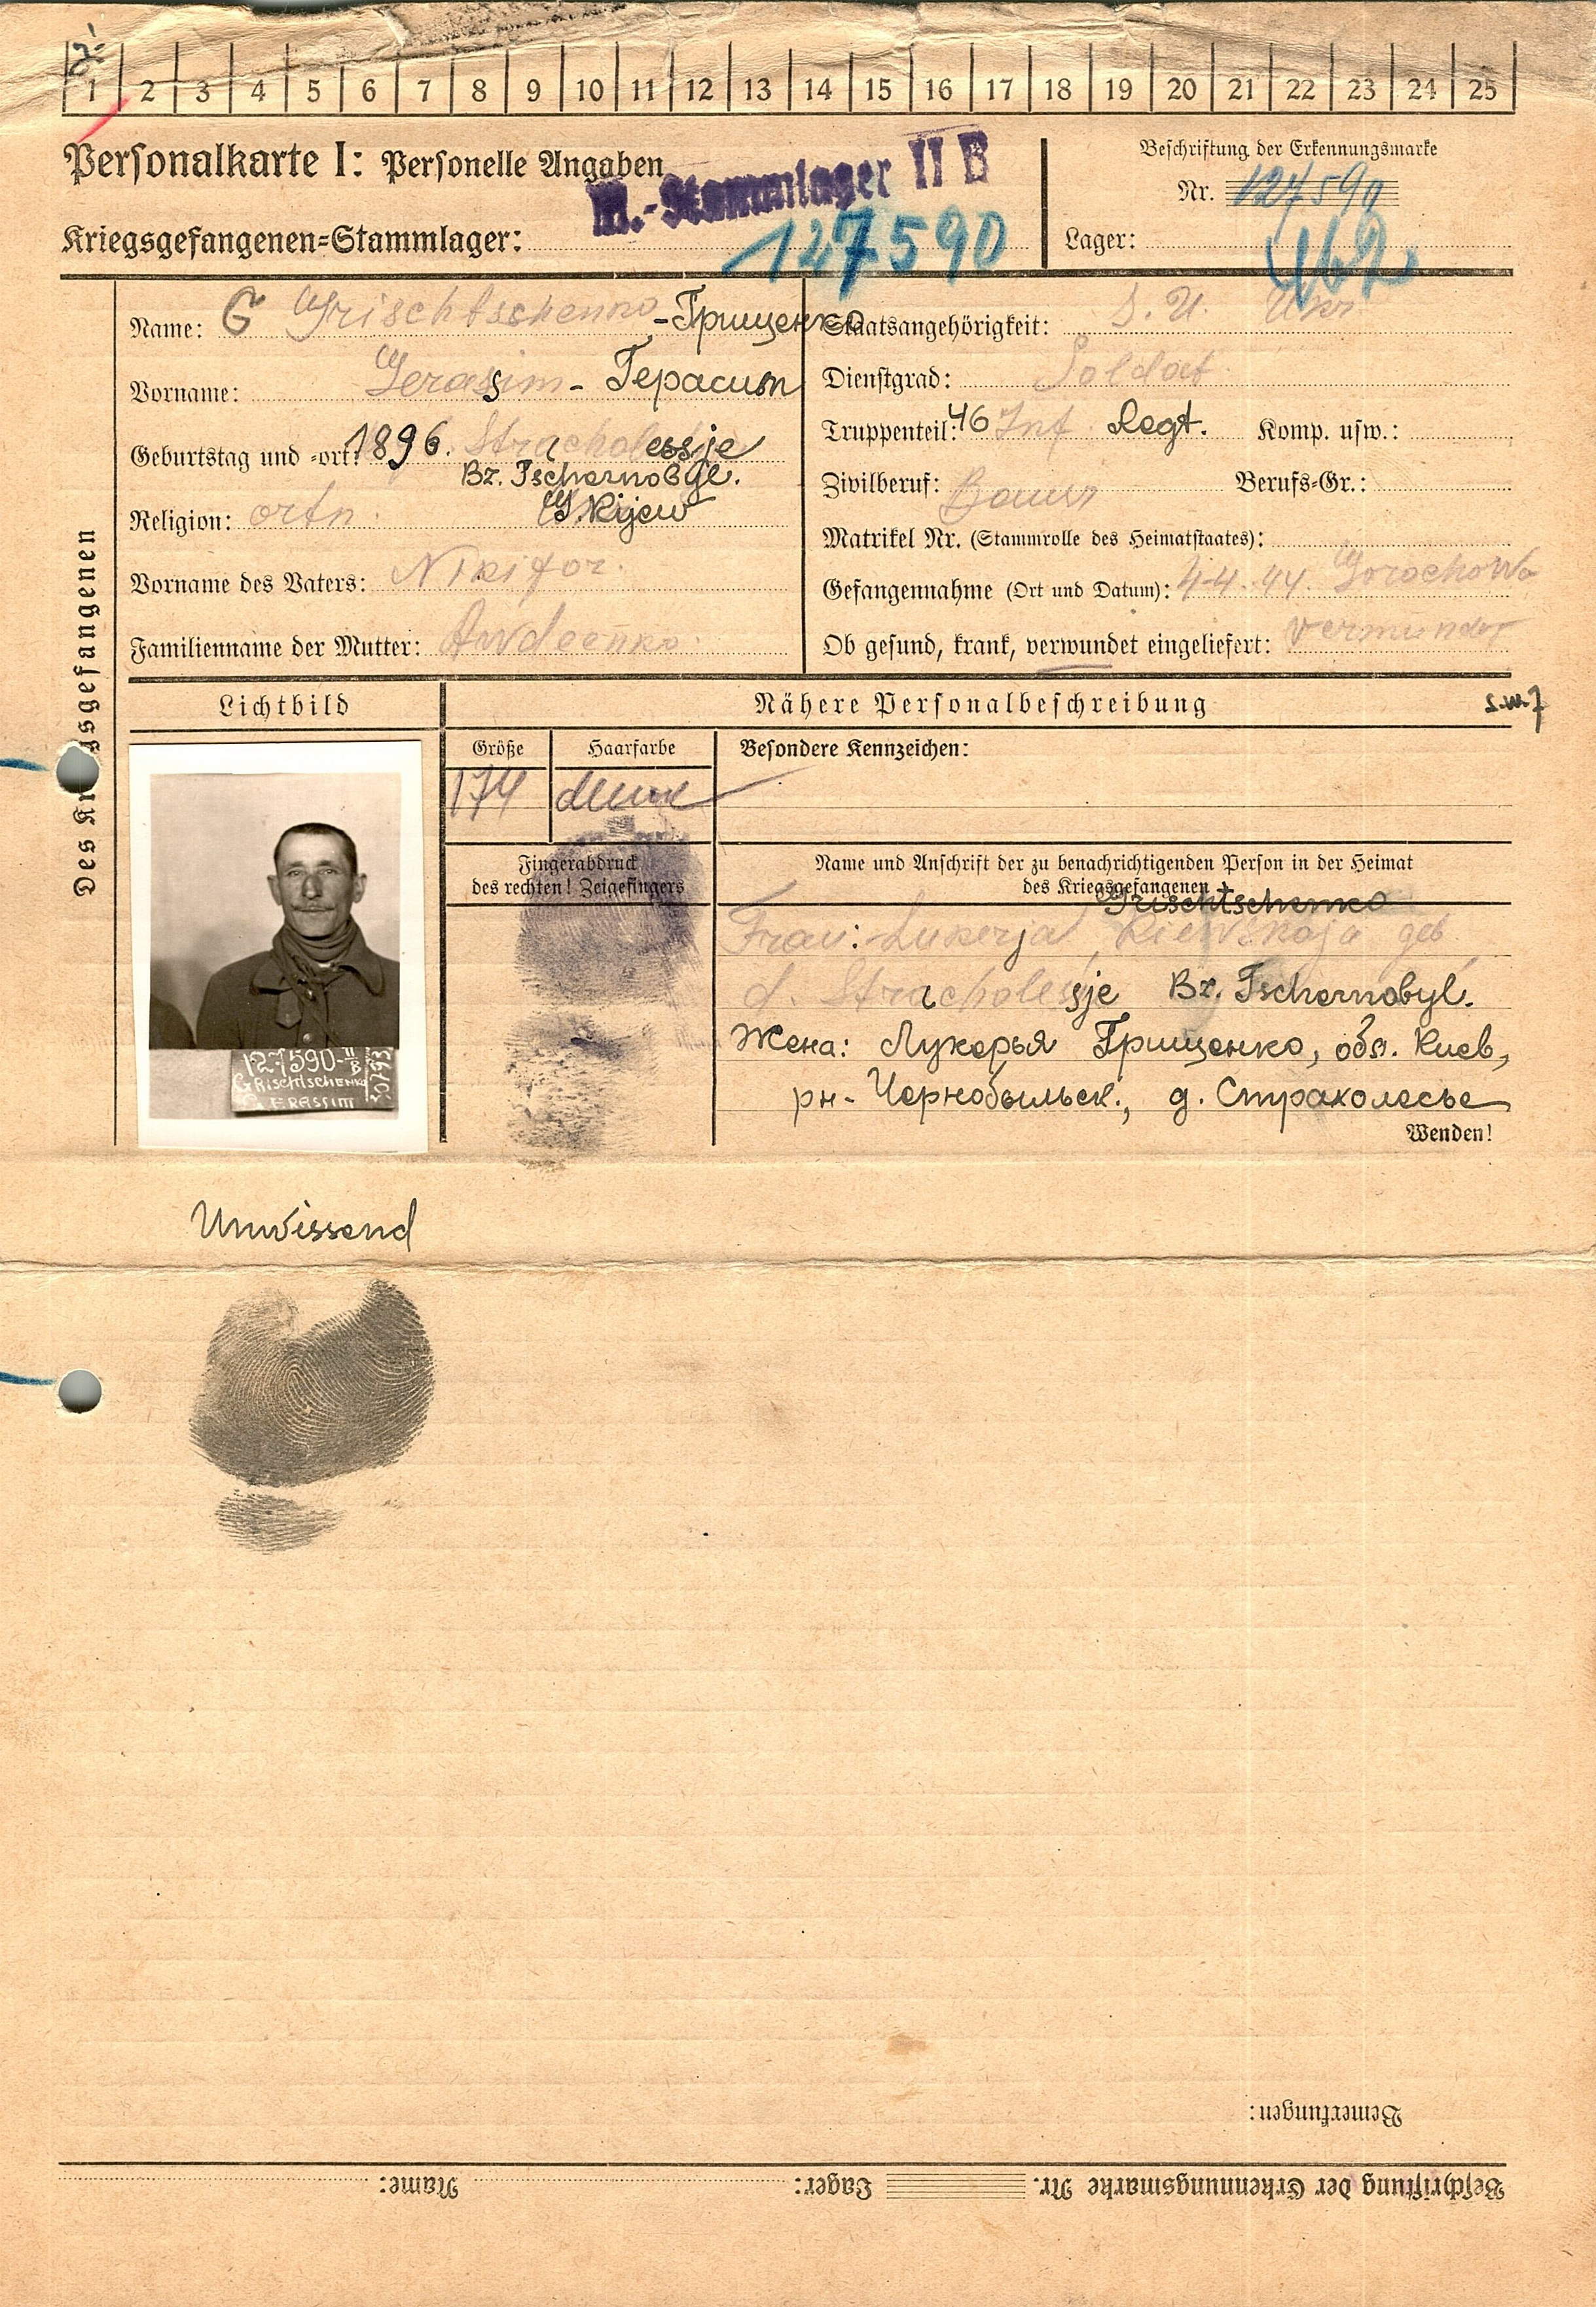 1 2 3 4 5 6 7 8 9 10 11 12 13 14 15 16 17 18 19 20 21 22 23 24 25
Personalkarte I: Personelle Angaben
M.-Stammlager II B
Kriegsgefangenen=Stammlager:
127590
Beschriftung der Erkennungsmarke
Nr. 127590
Lager: 462
Des Kriegsgefangenen
Name: G Grischtschenko - Грищенко
Vorname: Gerassim - Герасим
Geburtstag und =ort: 1896. Stracholessje
Bz. Tschernobyl.
G. Kijew
Religion: orth.
Vorname des Vaters: Nikifor.
Familienname der Mutter: Awdeenko
Staatsangehörigkeit: S.U. Ukr
Dienstgrad: Soldat
Truppenteil: 46 Inf Regt. Komp. usw.:
Zivilberuf: Bauer Berufs=Gr.:
Matrikel Nr. (Stammrolle des Heimatstaates):
Gefangennahme (Ort und Datum): 4.4.44. Gorochowo
Ob gesund, krank, verwundet eingeliefert: verwundet
Lichtbild
Nähere Personalbeschreibung
s.w.7
Größe
Haarfarbe
Besondere Kennzeichen:
174
Fingerabdruck
des rechten! Zeigefingers
Name und Anschrift der zu benachrichtigenden Person in der Heimat
des Kriegsgefangenen
Grischtschenko
Frau: Lukerja Kiewskaja geb
d. Stracholessje Bz. Tschernobyl.
Жена: Лукерья Грищенко, обл. Киев,
рн- Чернобыльск., д. Страхолесье
Wenden!
127590-II B
GRISCHTSCHENKO
GERASSIM
Unwissend
Bemerkungen:
Beschriftung der Erkennungsmarke Nr. Lager: Name: